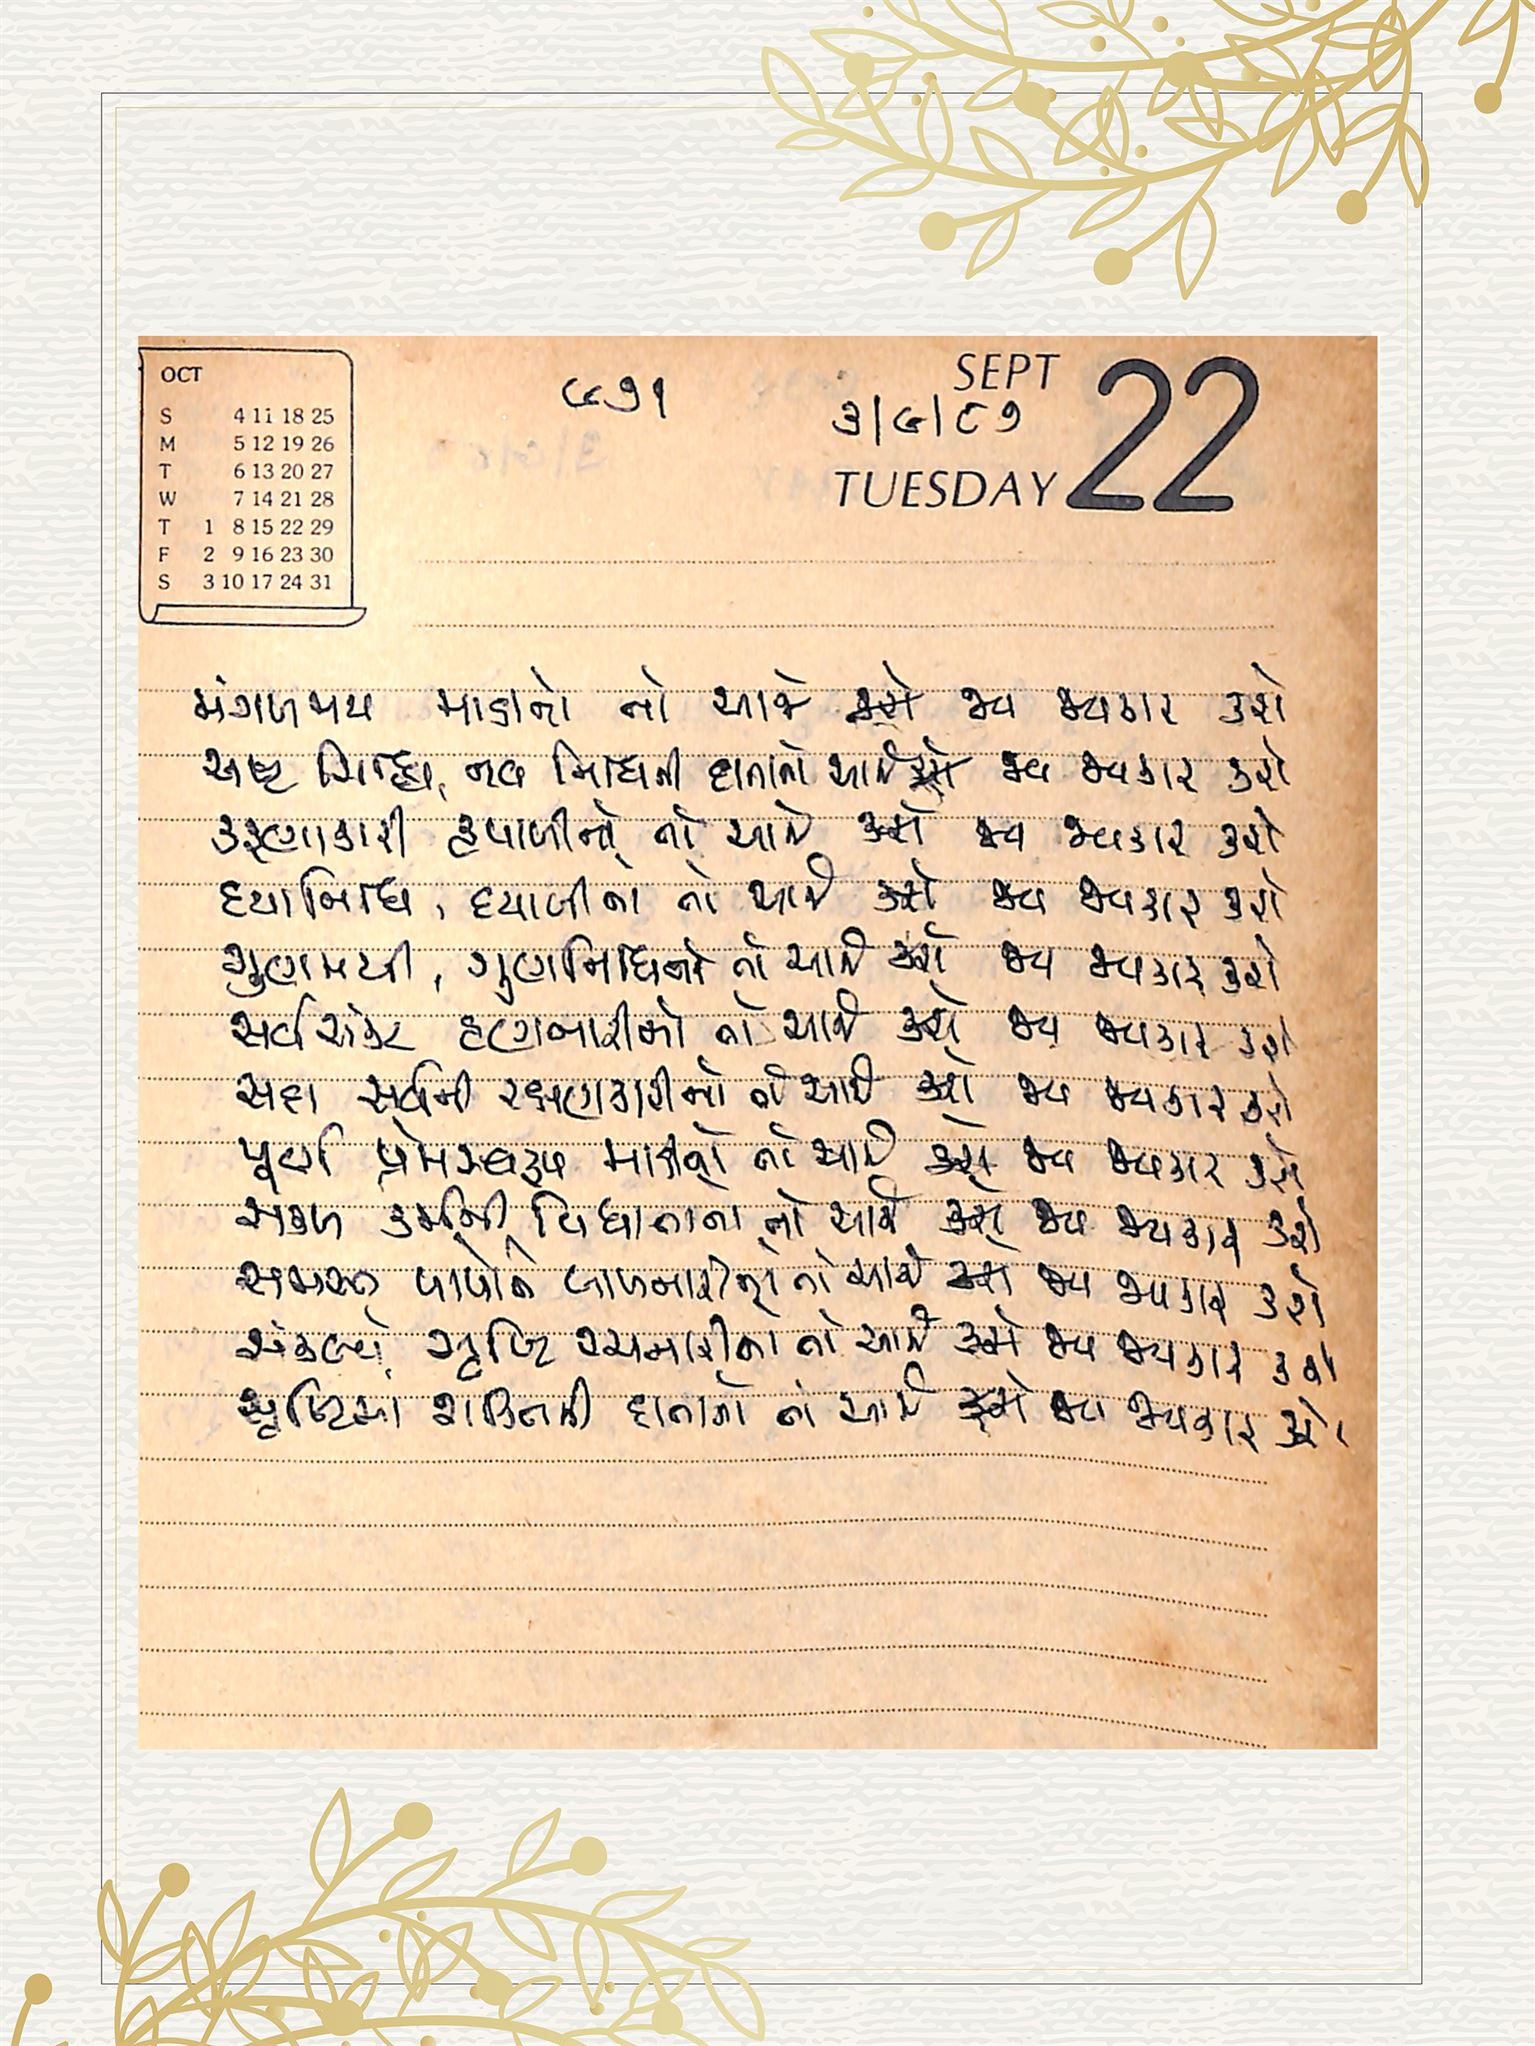 OCT
S 4 11 18 25
M 5 12 19 26
T 6 13 20 27
W 7 14 21 28
T 1 8 15 22 29
F 2 9 16 23 30
S 3 10 17 24 31
SEPT
22
૩/૯/૮૭
TUESDAY
મંગળમય માડીનો તો આજે સૌ જય જયકાર કરો
અષ્ટ સિદ્ધિ, નવ નિધિની દાતાનો આજે સૌ જય જયકાર કરો
કરૂણાકારી કૃપાળીનો તો આજે સૌ જય જયકાર કરો
દયાનિધિ, દયાળીનો તો આજે સૌ જય જયકાર કરો
ગુણમયી, ગુણનિધિનો તો આજે સૌ જય જયકાર કરો
સર્વ સંકટ હણનારીનો તો આજે સૌ જય જયકાર કરો
સદા સર્વની રક્ષણકારીનો તો આજે સૌ જય જયકાર કરો
પૂર્ણ પ્રેમસ્વરૂપ માડીનો તો આજે સૌ જય જયકાર કરો
સકળ કર્મની વિધાતાનો તો આજે સૌ જય જયકાર કરો
સમસ્ત પાપોને બાળનારીનો તો આજે સૌ જય જયકાર કરો
સંકલ્પે સૃષ્ટિ રચનારીનો તો આજે સૌ જય જયકાર કરો
સૃષ્ટિમાં શક્તિની દાતાનો તો આજે સૌ જય જયકાર કરો